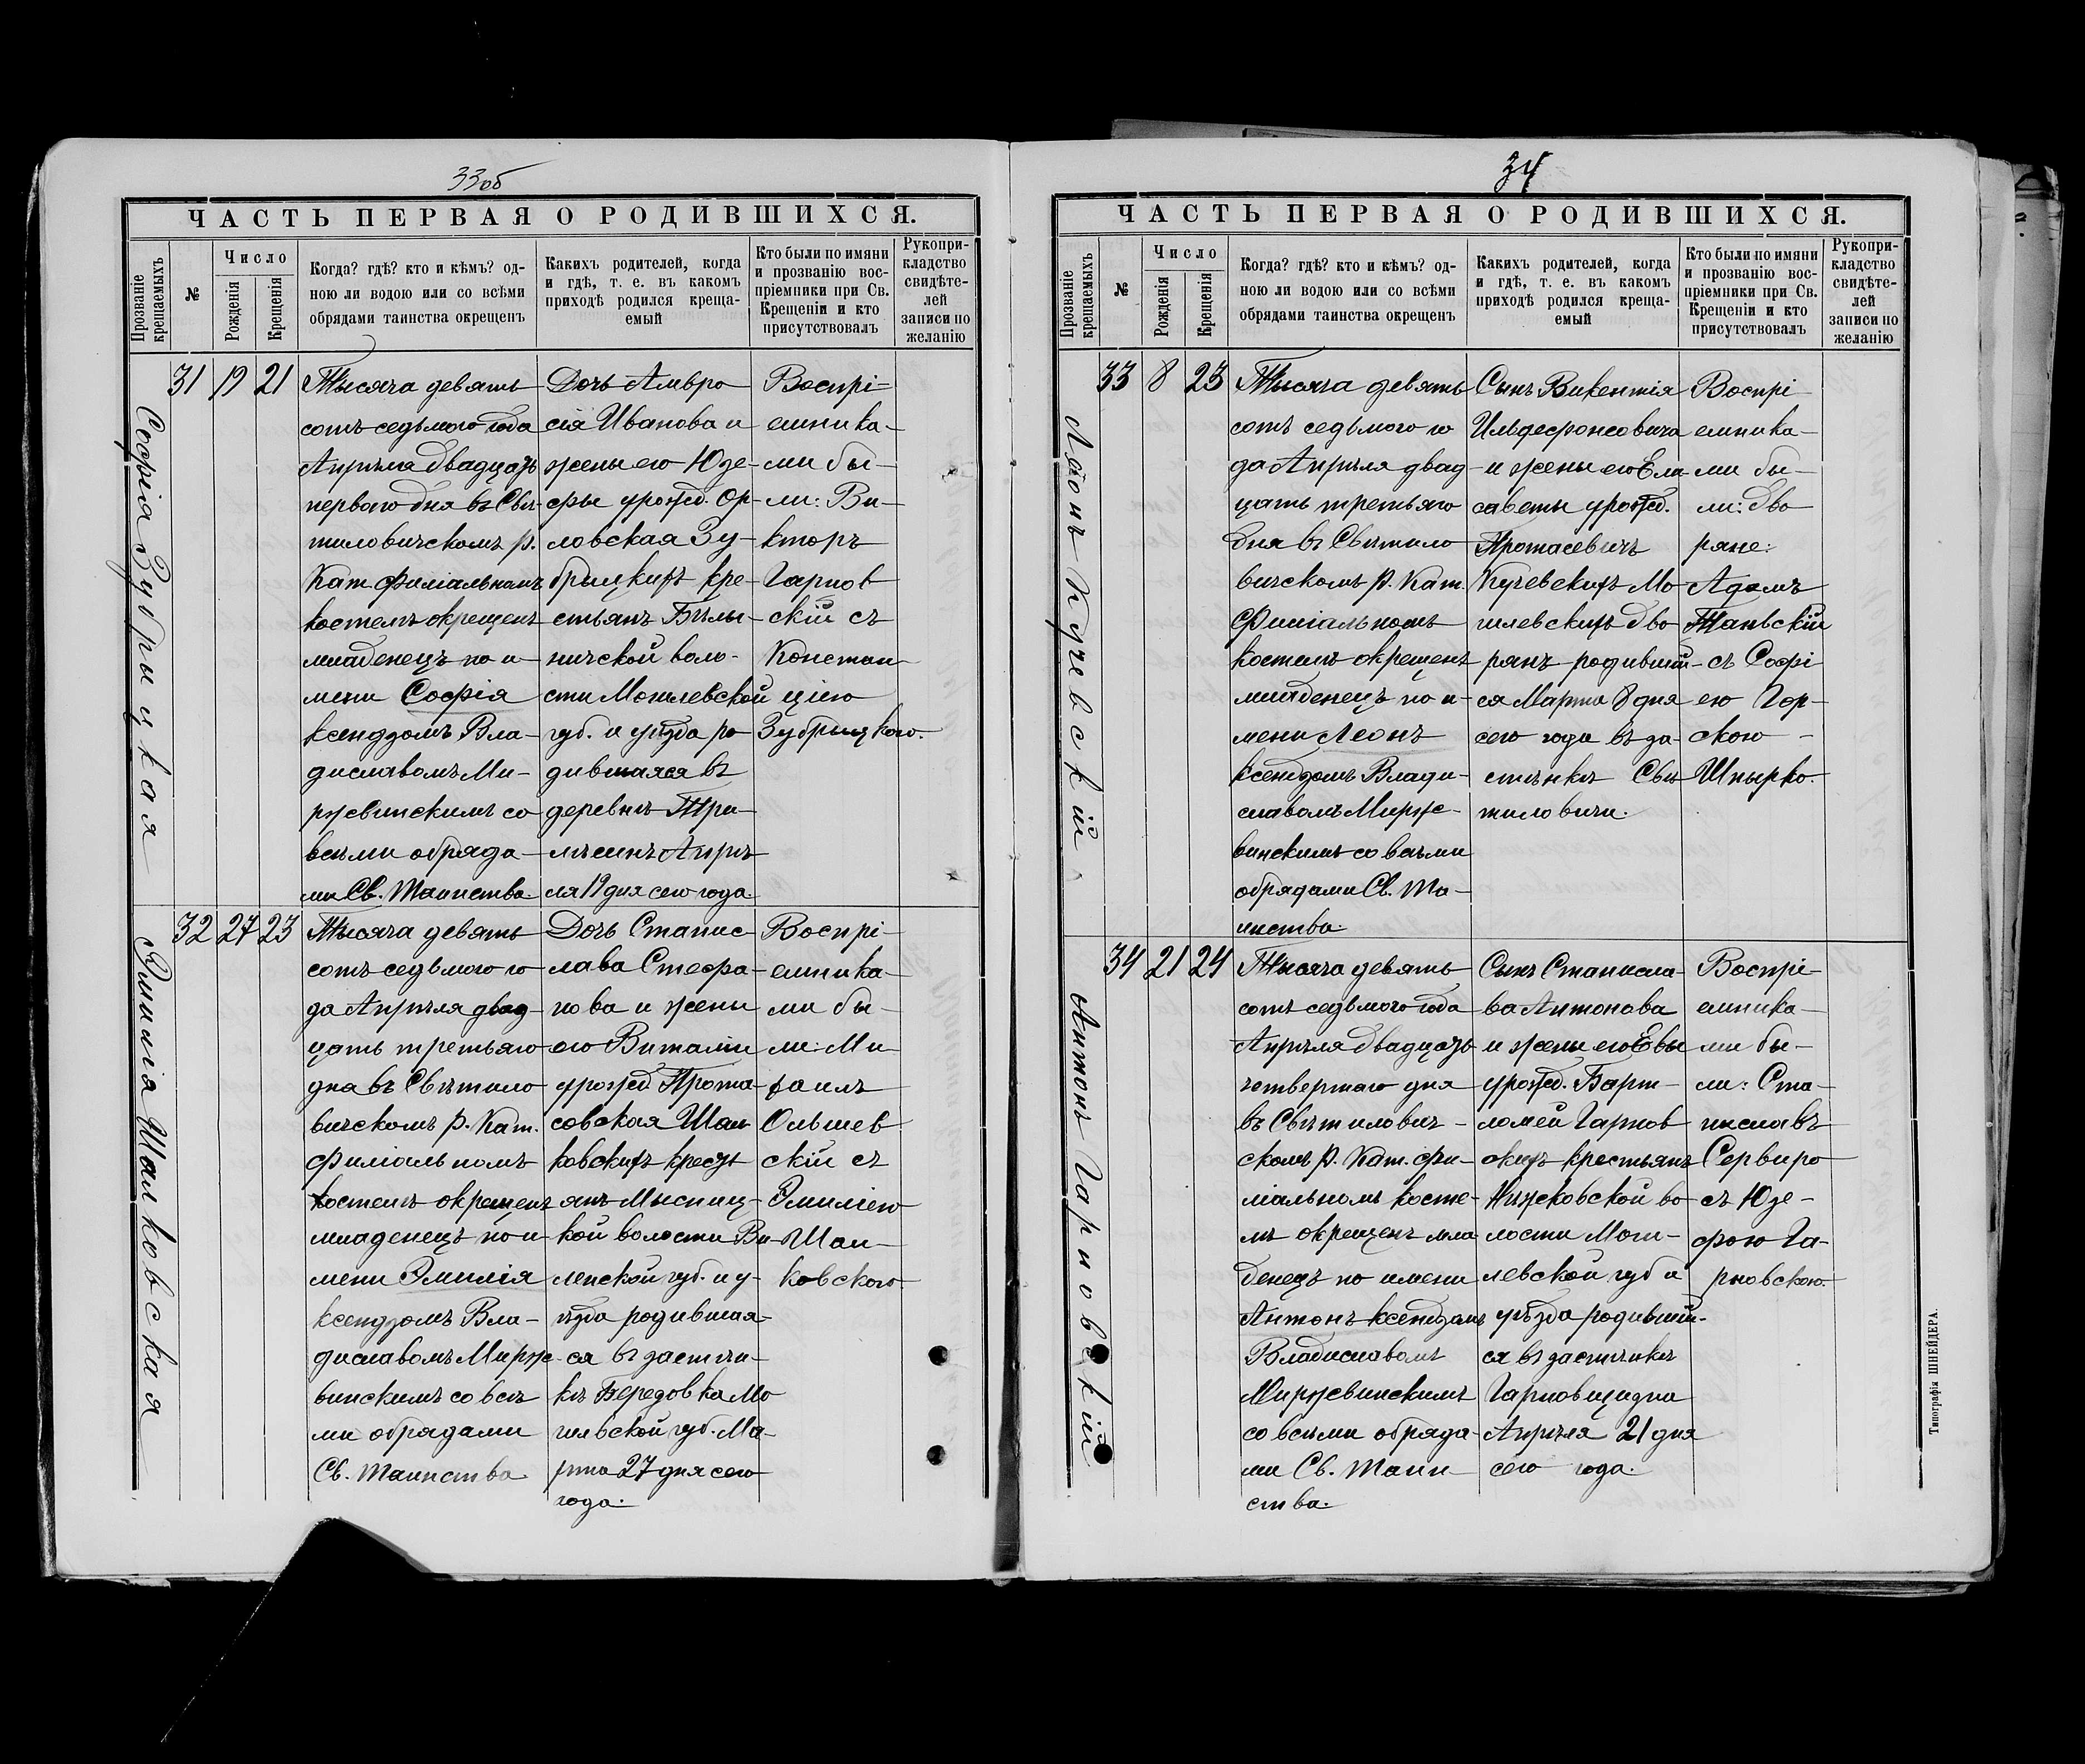 33об
ЧАСТЬ ПЕРВАЯ О РОДИВШИХСЯ.
Прозваніе крещаемыхъ
№
Число
Рожденія
Крещенія
Когда? гдѣ? кто и кѣмъ? од-
ною ли водою или со всѣми
обрядами таинства окрещенъ
Какихъ родителей, когда
и гдѣ, т. е. въ какомъ
приходѣ родился креща-
емый
Кто были по имяни
и прозванію вос-
пріемники при Св.
Крещеніи и кто
присутствовалъ
Рукопри-
кладство
свидѣте-
лей
записи по
желанію
Софія Зубрицкая
31 19 21
Тысяча девять
сотъ седьмого года
Апрѣля двадцать
перваго дня въ Свѣ-
тиловичскомъ р.
Кат. филіальномъ
костелѣ окрещенъ
младенецъ по и-
мени Софія
ксендзомъ Вла-
диславомъ Ми-
ржвинскимъ со
всѣми обряда-
ми Св. Таинства.
Дочь Амвро
сія Иванова и
жены его Юзе-
фы урожд. Ор-
ловская Зу-
брицкихъ кре-
стьянъ Бѣлы-
ничской воло-
сти Могилевской
губ. и уѣзда ро
дившаяся въ
деревнѣ Три-
лѣсинъ Апрѣ
ля 19 дня сего года.
Воспрі-
емника-
ми бы-
ли: Ви-
кторъ
Гарнов
скій съ
Констан
ціею
Зубрицкого.
Эмилія Шалковская
32 27 23
Тысяча девять
сотъ седьмого го
да Апрѣля двад-
цать третьяго
дна въ Свѣтило
вичскомъ р. Кат.
филіальномъ
костелѣ окрещенъ
младенецъ по и-
мени Эмилія
ксендзомъ Вла-
диславомъ Мирж-
винскимъ со всѣ
ми обрядами
Св. Таинства.
Дочь Станис
лава Стефа-
нова и жены
его Виталіи
урожд Прота-
совская Шал
ковскихъ кресть
янъ Мысниц-
кой волости Ви-
ленской губ. и у-
ѣзда родившая-
ся въ застѣн-
кѣ Бередовка Мо
гилевской губ. Ма-
рта 27 дня сего
года.
Воспрі-
емника-
ми бы-
ли: Ми
хаилъ
Ольшев
скій съ
Эмиліею
Шал-
ковского.
34
ЧАСТЬ ПЕРВАЯ О РОДИВШИХСЯ.
Прозваніе крещаемыхъ
№
Число
Рожденія
Крещенія
Когда? гдѣ? кто и кѣмъ? од-
ною ли водою или со всѣми
обрядами таинства окрещенъ
Какихъ родителей, когда
и гдѣ, т. е. въ какомъ
приходѣ родился креща-
емый
Кто были по имяни
и прозванію вос-
пріемники при Св.
Крещеніи и кто
присутствовалъ
Рукопри-
кладство
свидѣте-
лей
записи по
желанію
Леонъ Кучевскій
33 8 23
Тысяча девять
сотъ седьмого го
да Апрѣля двад-
цать третьяго
дня въ Свѣтило
вичскомъ р. Кат.
Филіальномъ
костелѣ окрещенъ
младенецъ по и-
мени Леонъ
ксендзомъ Влади-
славомъ Мирже-
винскимъ со всѣми
обрядами Св. Та-
инства.
Сынъ Викентія
Ильдефонсовича
и жены его Ели
саветы урожд.
Протасевичъ
Кучевскихъ Мо
гилевскихъ дво
рянъ родивший-
ся Марта 8 дня
сего года въ за-
стѣнкѣ Свѣ
тиловичи.
Воспрі
емника-
ми бы-
ли: дво
ряне:
Адамъ
Танвскій
съ Софі
ею Гор-
скою -
Шпырко.
Антонъ Гарновскій
34 21 24
Тысяча девять
сотъ седьмого года
Апрѣля двадцать
четвертаго дня
въ Свѣтилович-
скомъ р. Кат. фи-
ліальномъ косте-
лѣ окрещенъ мла
денецъ по имени
Антонъ ксендзомъ
Владиславомъ
Миржвинскимъ
со всѣми обряда-
ми Св. Таин-
ства.
Сынъ Станисла-
ва Антонова
и жены его Евы
урожд. Барт-
ломей Гарнов
скихъ крестьянъ
Нѣжковской во-
лости Моги-
левской губ и
уѣзда родивший-
ся въ застѣнкѣ
Гарновщизна
Апрѣля 21 дня
сего года.
Воспрі-
емника-
ми бы-
ли: Ста-
ниславъ
Сервиро
съ Юзе-
фою Га-
рновскою.
Типографія ШНЕЙДЕРА.